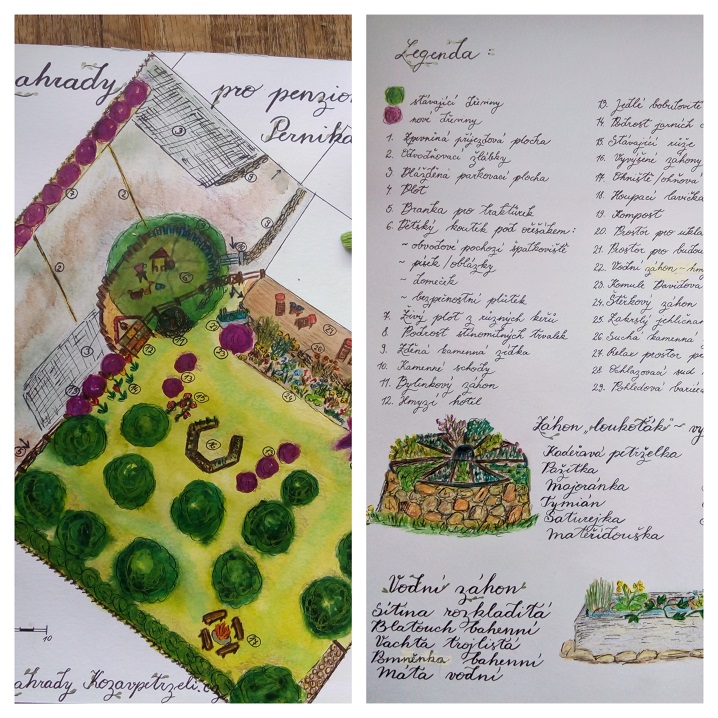 ahrady pro penzion
Pernika
10
ahrady Kozavpetrzeli.cz
Legenda :
stávající dřeviny
nové dřeviny
1. Zpevněná příjezdová plocha
2. Odvodňovací žlábky
3. Dlážděná parkovací plocha
4. Plot
5. Branka pro traktůrek
6. Dětský koutek pod ořešákem:
~ obvodové pochozí špalkoviště
~ písek/oblázky
~ domeček
~ bezpečnostní plůtek
7. Živý plot z různých keřů
8. Podrost stínomilných trvalek
9. Zděná kamenná zídka
10. Kamenné schody
11. Bylinkový záhon
12. Hmyzí hotel
13. Jedlé bobulovité
14. Podrost jarních c
15. Stávající růže
16. Vyvýšené záhony
17. Ohniště/ohňová
18. Houpací lavička
19. Kompost
20. Prostor pro
21. Prostor pro budou
22. Vodní záhon ~ hm
23. Komule Davidova
24. Štěrkový záhon
25. Zakrslý jehličnan
26. Suchá kamenná
27. Relax prostor př
28. Ochlazovací sud
29. Pohledová bariér
Záhon „loukoťák" ~ vy
Kadeřavá petrželka
Pažitka
Majoránka
Tymián
Saturejka
Mateřídouška
Vodní záhon
Sítina rozkladitá
Blatouch bahenní
Vachta trojlistá
Pomněnka bahenní
Máta vodní